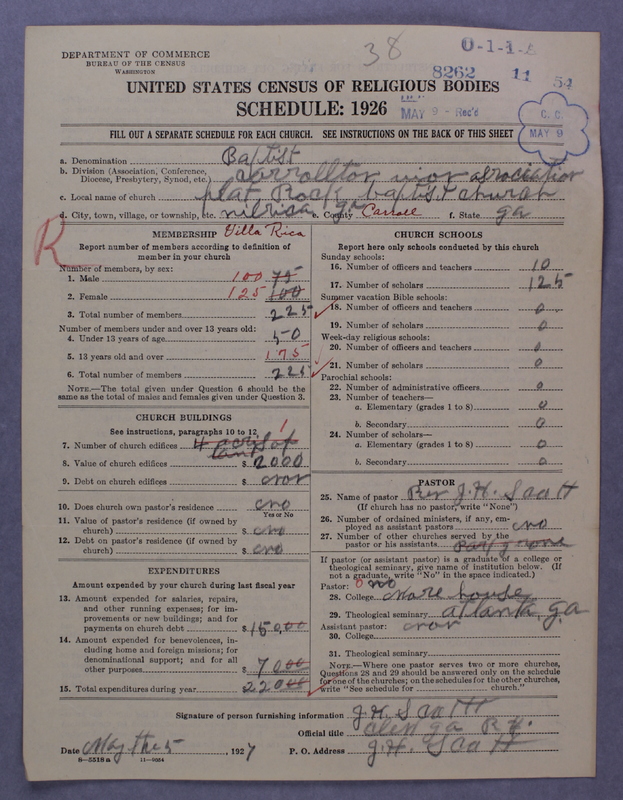 38
O-1-1-
8262 11 54
DEPARTMENT OF COMMERCE
BUREAU OF THE CENSUS
WASHINGTON
UNITED STATES CENSUS OF RELIGIOUS BODIES
SCHEDULE: 1926
MAY 9 - Rec'd
C. C.
MAY 9
FILL OUT A SEPARATE SCHEDULE FOR EACH CHURCH. SEE INSTRUCTIONS ON THE BACK OF THIS SHEET
a. Denomination Baptist
b. Division (Association, Conference, Diocese, Presbytery, Synod, etc.) Carrollton union association
c. Local name of church plat Rock baptist church
d. City, town, village, or township, etc. ga e. County Carroll f. State ga
R
MEMBERSHIP Villa Rica
Report number of members according to definition of
member in your church
Number of members, by sex:
1. Male 100 75
2. Female 125 100
3. Total number of members 225
Number of members under and over 13 years old:
4. Under 13 years of age 50
5. 13 years old and over 175
6. Total number of members 225
NOTE.—The total given under Question 6 should be the
same as the total of males and females given under Question 3.
CHURCH BUILDINGS
See instructions, paragraphs 10 to 12
7. Number of church edifices 1 4 acris of land
8. Value of church edifices $ 2000
9. Debt on church edifices $
10. Does church own pastor's residence no
Yes or No
11. Value of pastor's residence (if owned by
church) $ no
12. Debt on pastor's residence (if owned by
church) $ no
EXPENDITURES
Amount expended by your church during last fiscal year
13. Amount expended for salaries, repairs,
and other running expenses; for im-
provements or new buildings; and for
payments on church debt $ 150.00
14. Amount expended for benevolences, in-
cluding home and foreign missions; for
denominational support; and for all
other purposes $ 7000
15. Total expenditures during year $ 22000
CHURCH SCHOOLS
Report here only schools conducted by this church
Sunday schools:
16. Number of officers and teachers 10
17. Number of scholars 125
Summer vacation Bible schools:
18. Number of officers and teachers 0
19. Number of scholars 0
Week-day religious schools:
20. Number of officers and teachers 0
21. Number of scholars 0
Parochial schools:
22. Number of administrative officers 0
23. Number of teachers—
a. Elementary (grades 1 to 8) 0
b. Secondary 0
24. Number of scholars—
a. Elementary (grades 1 to 8) 0
b. Secondary 0
PASTOR
25. Name of pastor Rev J. H. Scott
(If church has no pastor, write "None")
26. Number of ordained ministers, if any, em-
ployed as assistant pastors no
27. Number of other churches served by the
pastor or his assistants
If pastor (or assistant pastor) is a graduate of a college or
theological seminary, give name of institution below. (If
not a graduate, write "No" in the space indicated.)
Pastor: no
28. College More house
29. Theological seminary atlanta, ga
Assistant pastor:
30. College
31. Theological seminary
NOTE.—Where one pastor serves two or more churches,
Questions 28 and 29 should be answered only on the schedule
for one of the churches; on the schedules for the other churches,
write "See schedule for church."
Signature of person furnishing information J. H. Scott
Official title
Date May the 5, 1927 P. O. Address J. H. Scott
8-5518a 11-9554